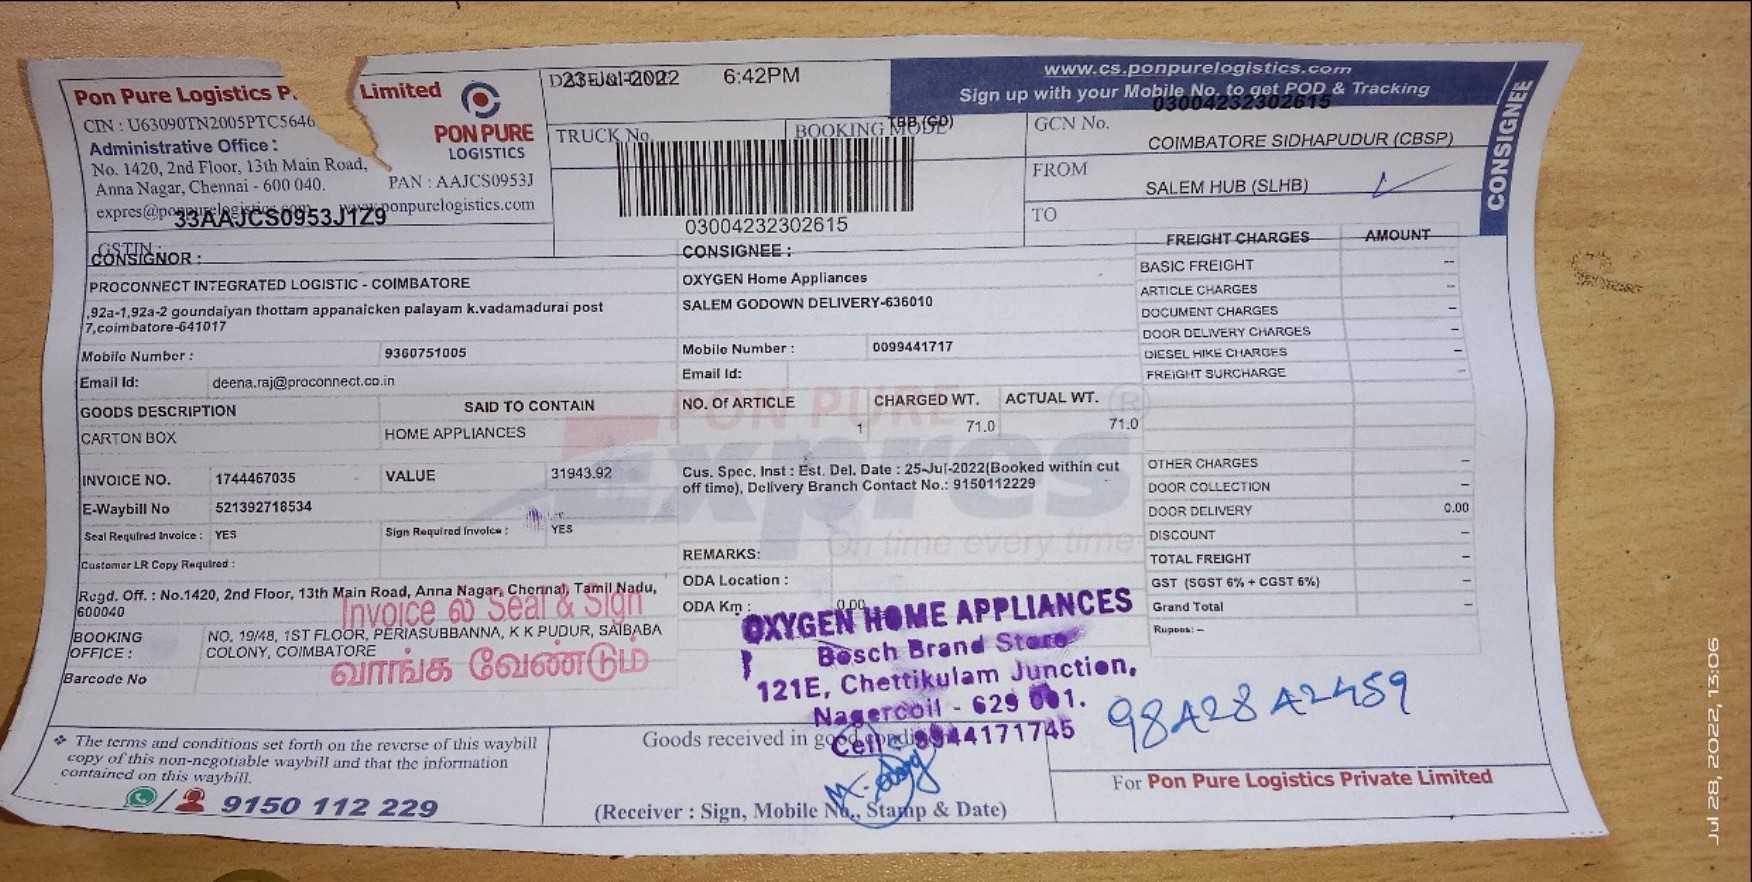 Pon Pure Logistics P. Limited
CIN : U63090TN2005PTC5646
Administrative Office :
No. 1420, 2nd Floor, 13th Main Road,
Anna Nagar, Chennai - 600 040.
PON PURE
LOGISTICS
PAN : AAJCS0953J
www.ponpurelogistics.com
33AAJCS0953J1Z9
GSTIN :
23-Jul-2022 6:42PM
TRUCK No.
BOOKING MODE
TBB (GD)
03004232302615
www.cs.ponpurelogistics.com
Sign up with your Mobile No. to get POD & Tracking
03004232302615
GCN No.
COIMBATORE SIDHAPUDUR (CBSP)
FROM
SALEM HUB (SLHB)
TO
CONSIGNEE
CONSIGNOR :
PROCONNECT INTEGRATED LOGISTIC - COIMBATORE
,92a-1,92a-2 goundaiyan thottam appanaicken palayam k.vadamadurai post
7,coimbatore-641017
Mobile Number : 9360751005
Email Id: deena.raj@proconnect.co.in
CONSIGNEE :
OXYGEN Home Appliances
SALEM GODOWN DELIVERY-636010
Mobile Number : 0099441717
Email Id:
GOODS DESCRIPTION SAID TO CONTAIN NO. Of ARTICLE CHARGED WT. ACTUAL WT.
CARTON BOX HOME APPLIANCES 1 71.0 71.0
INVOICE NO. 1744467035 VALUE 31943.92
E-Waybill No 521392718534
Seal Required Invoice : YES Sign Required Invoice : YES
Customer LR Copy Required :
Cus. Spec. Inst : Est. Del. Date : 25-Jul-2022(Booked within cut
off time), Delivery Branch Contact No.: 9150112229
REMARKS:
ODA Location :
ODA Km : 0.00
PON PURE
Expres
On time every time
FREIGHT CHARGES AMOUNT
BASIC FREIGHT --
ARTICLE CHARGES –
DOCUMENT CHARGES –
DOOR DELIVERY CHARGES –
DIESEL HIKE CHARGES –
FREIGHT SURCHARGE –
OTHER CHARGES –
DOOR COLLECTION –
DOOR DELIVERY 0.00
DISCOUNT –
TOTAL FREIGHT –
GST (SGST 6% + CGST 6%) –
Grand Total –
Rupees: –
Regd. Off. : No.1420, 2nd Floor, 13th Main Road, Anna Nagar, Chennai, Tamil Nadu,
600040
Invoice ல் Seal & Sign
வாங்க வேண்டும்
BOOKING OFFICE : NO. 19/48, 1ST FLOOR, PERIASUBBANNA, K K PUDUR, SAIBABA
COLONY, COIMBATORE
Barcode No
OXYGEN HOME APPLIANCES
Bosch Brand Store
121E, Chettikulam Junction,
Nagercoil - 629 001.
Cell : 9944171745
❖ The terms and conditions set forth on the reverse of this waybill
copy of this non-negotiable waybill and that the information
contained on this waybill.
9150 112 229
Goods received in good condition
(Receiver : Sign, Mobile No., Stamp & Date)
For Pon Pure Logistics Private Limited
Jul 28, 2022, 13:06